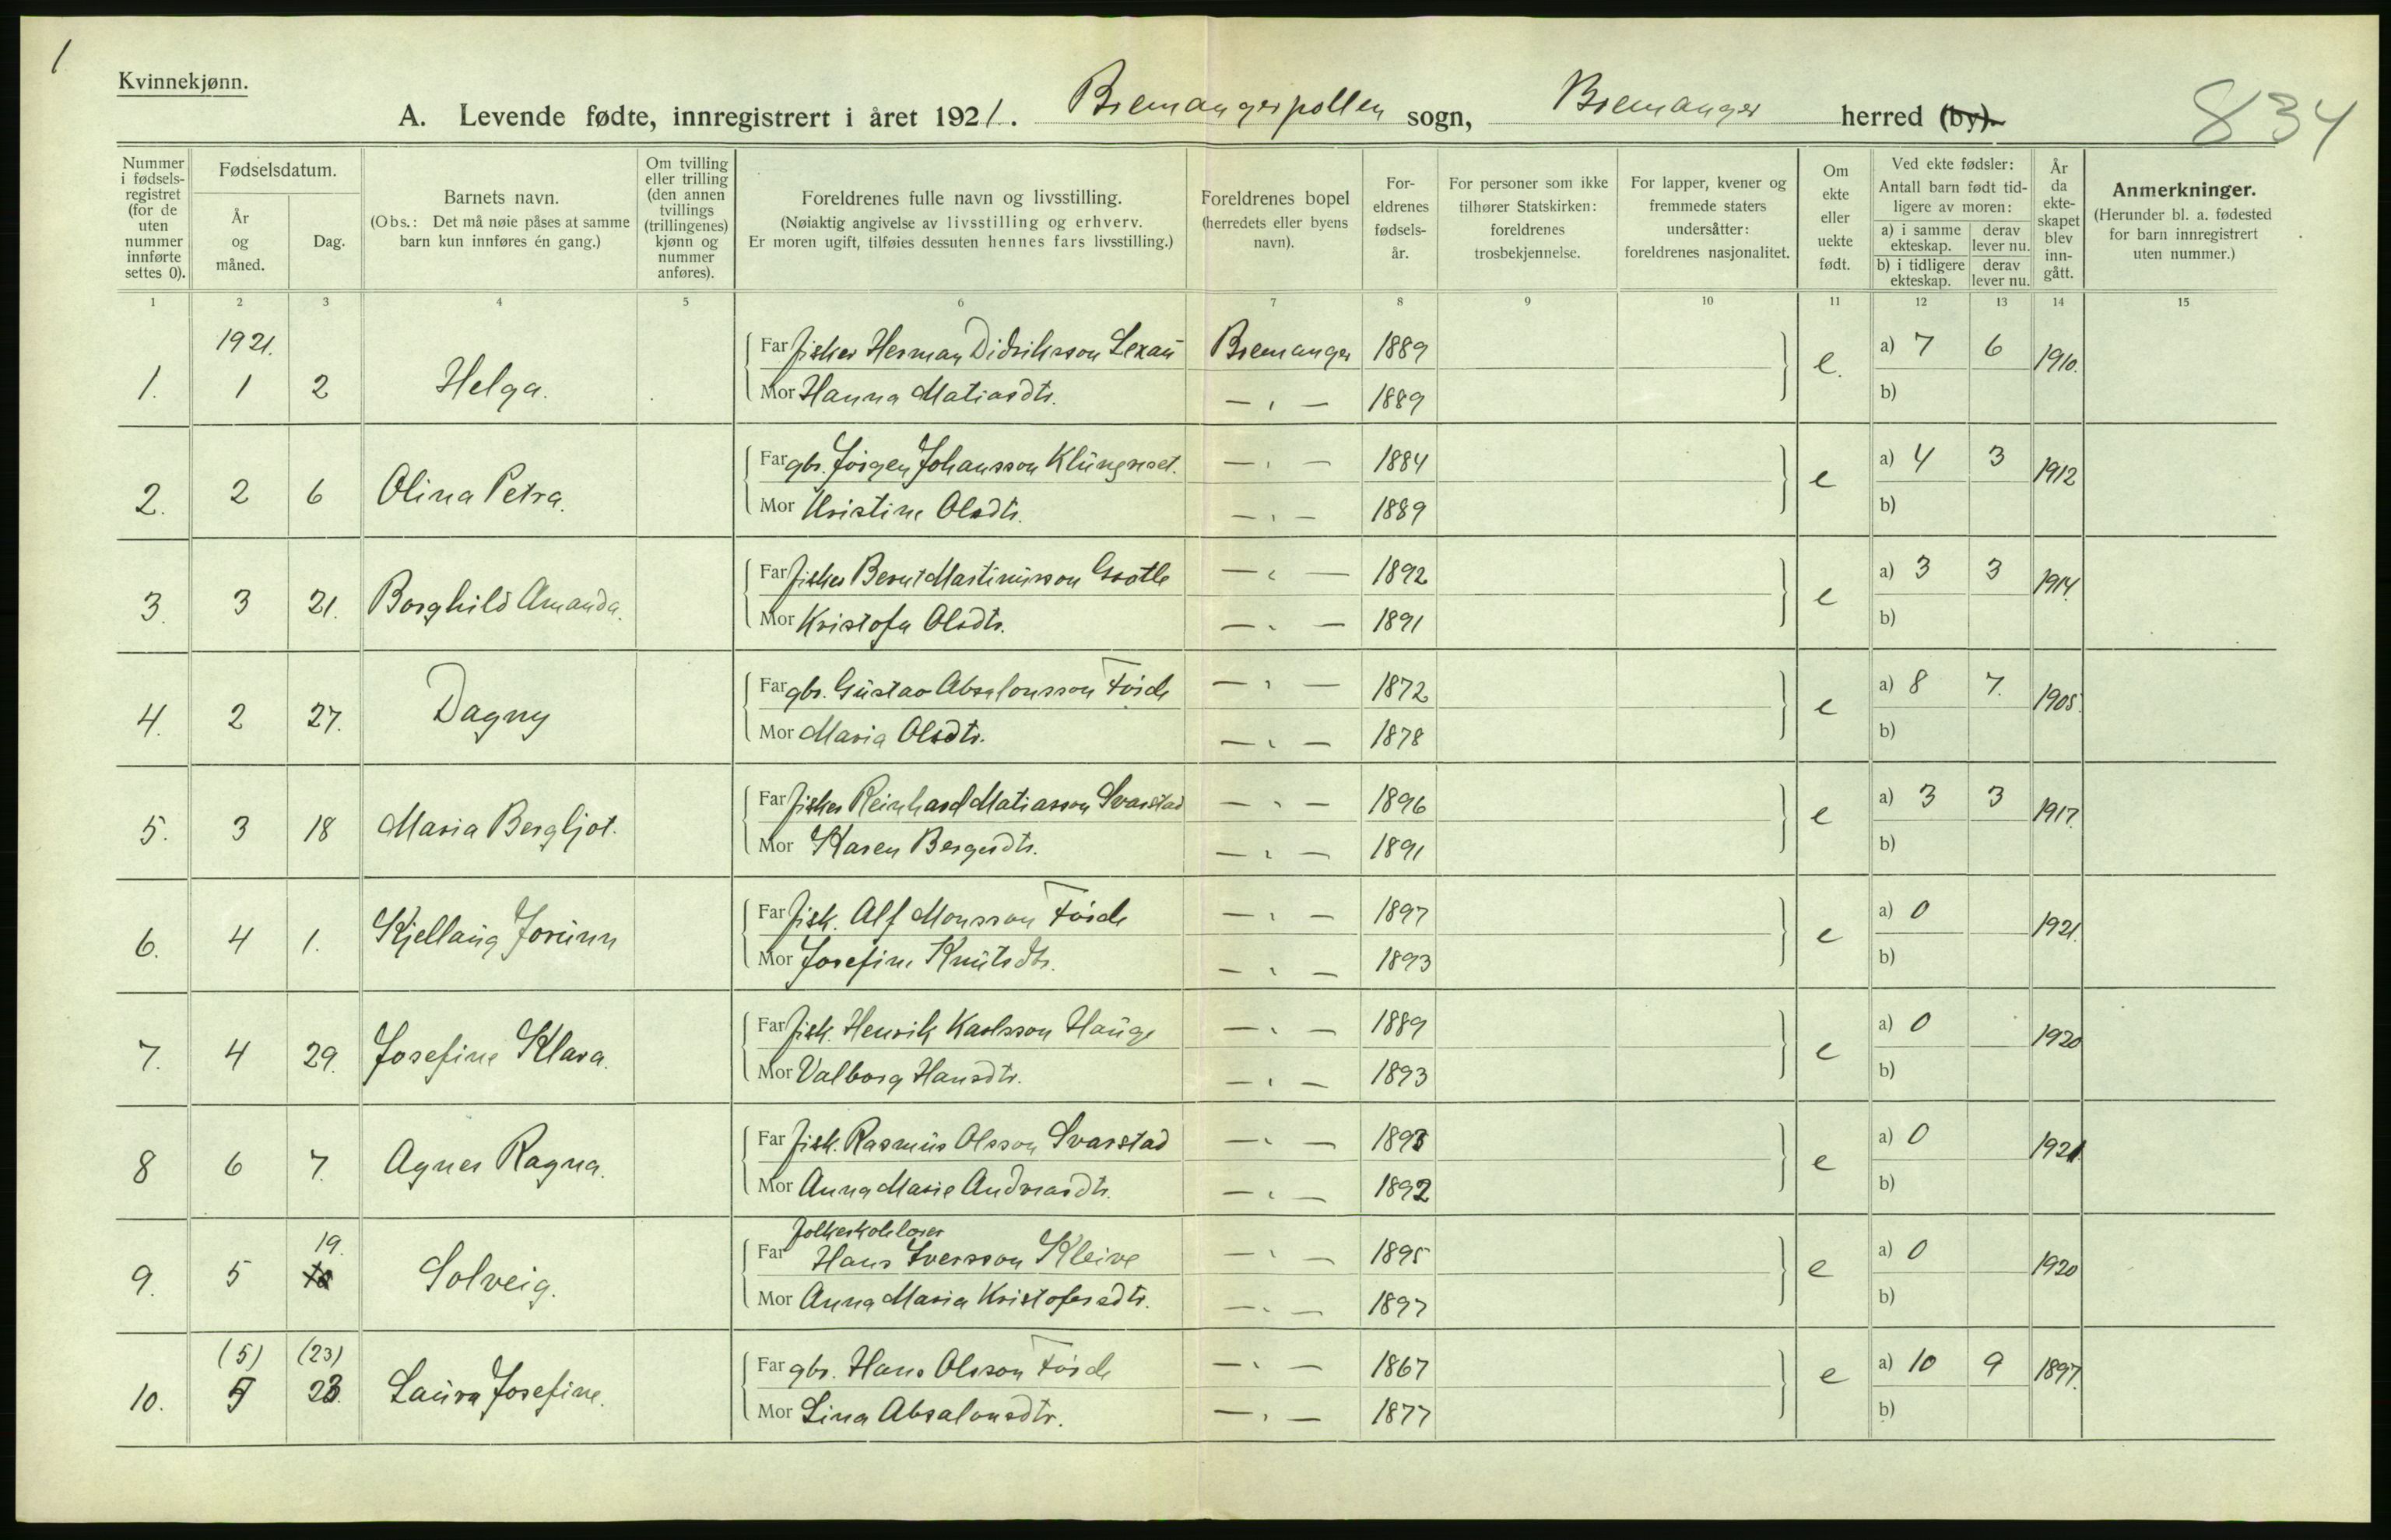 1
Kvinnekjønn.
A. Levende fødte, innregistrert i året 1921. Bremangerpollen sogn, Bremanger herred (by).
834
Nummer i fødsels-registret (for de uten nummer innførte settes 0).
Fødselsdatum.
År og måned.
Dag.
Barnets navn.
(Obs.: Det må nøie påses at samme barn kun innføres én gang.)
Om tvilling eller trilling (den annen tvillings (trillingenes) kjønn og nummer anføres).
Foreldrenes fulle navn og livsstilling.
(Nøiaktig angivelse av livsstilling og erhverv.
Er moren ugift, tilføies dessuten hennes fars livsstilling.)
Foreldrenes bopel
(herredets eller byens navn).
For-eldrenes fødsels-år.
For personer som ikke tilhører Statskirken: foreldrenes trosbekjennelse.
For lapper, kvener og fremmede staters undersåtter: foreldrenes nasjonalitet.
Om ekte eller uekte født.
Ved ekte fødsler:
Antall barn født tid-ligere av moren:
a) i samme ekteskap.
derav lever nu.
b) i tidligere ekteskap.
derav lever nu.
År da ekte-skapet blev inn-gått.
Anmerkninger.
(Herunder bl. a. fødested for barn innregistrert uten nummer.)
1 2 3 4 5 6 7 8 9 10 11 12 13 14 15
1921.
1. 1 2 Helga. Far fisker Herman Didriksson Lexau Bremanger 1889 e. a) 7 6 1910.
Mor Hanna Matiasdtr. — " — 1889 b)
2. 2 6 Olina Petra. Far gbr. Jörgen Johansson Klungreset. — " — 1884 e a) 4 3 1912
Mor Kristine Olsdtr. — " — 1889 b)
3. 3 21. Borghild Amanda. Far fisker Bernt Martinusson Grotle — " — 1892 e a) 3 3 1914.
Mor Kristofa Olsdtr. — " — 1891 b)
4. 2 27. Dagny Far gbr. Gustav Absalonsson Förde — " — 1872 e a) 8 7. 1905.
Mor Maria Olsdtr. — " — 1878 b)
5. 3 18 Maria Bergljot. Far fisker Reinhard Matiasson Svarstad — " — 1896 e a) 3 3 1917.
Mor Karen Bergesdtr. — " — 1891 b)
6. 4 1. Kjellaug Jorunn Far fisk. Alf Monsson Förde — " — 1897 e a) 0 1921.
Mor Josefine Knutsdtr. — " — 1893 b)
7. 4 29. Josefine Klara. Far fisk. Henrik Karlsson Hauge — " — 1889 e a) 0 1920
Mor Valborg Hansdtr. — " — 1893 b)
8 6 7. Agnes Ragna. Far fisk. Rasmus Olsson Svarstad — " — 1893 e a) 0 1921.
Mor Anna Marie Andreasdtr. — " — 1892 b)
19. Folkeskolelærer
9. 5 Solveig. Far Hans Iversson Kleive — " — 1895 e a) 0 1920
Mor Anna Maria Kristofersdtr. — " — 1897 b)
(5) (23)
10. 5 23. Laura Josefine. Far gbr. Hans Olsson Förde — " — 1867 e a) 10 9 1897.
Mor Lina Absalonsdtr. — " — 1877 b)